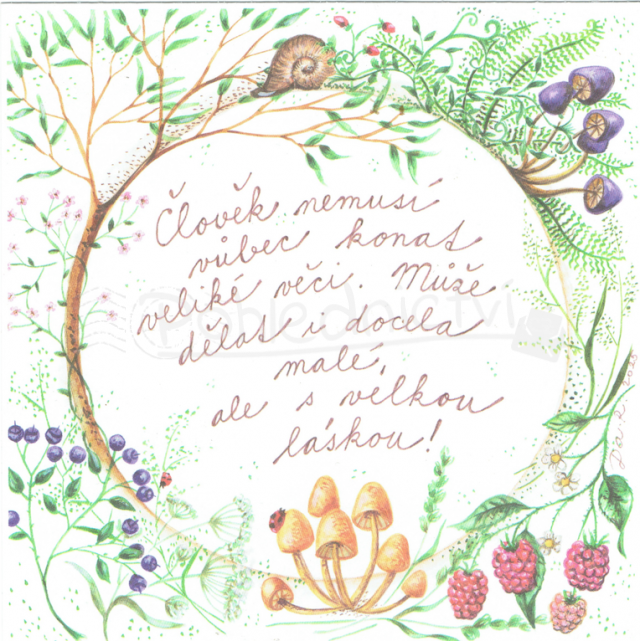 Člověk nemusí
vůbec konat
veliké věci. Může
dělat i docela
malé,
ale s velkou
láskou!
Pohlednictví
2023